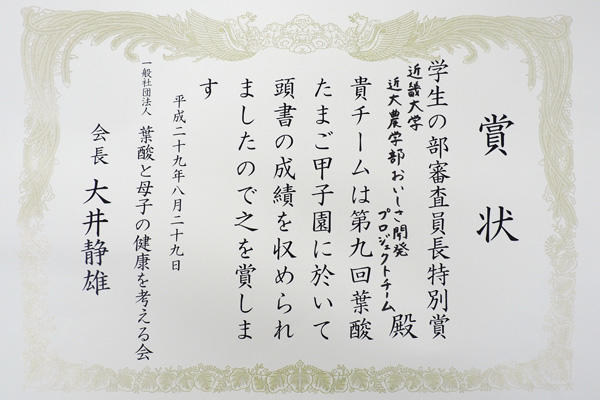 賞状
学生の部審査員長特別賞
近畿大学
近大農学部おいしさ開発
プロジェクトチーム
殿
貴チームは第九回葉酸
たまご甲子園に於いて
頭書の成績を収められ
ましたので之を賞しま
す
平成二十九年八月二十九日
一般社団法人 葉酸と母子の健康を考える会
会長 大井静雄